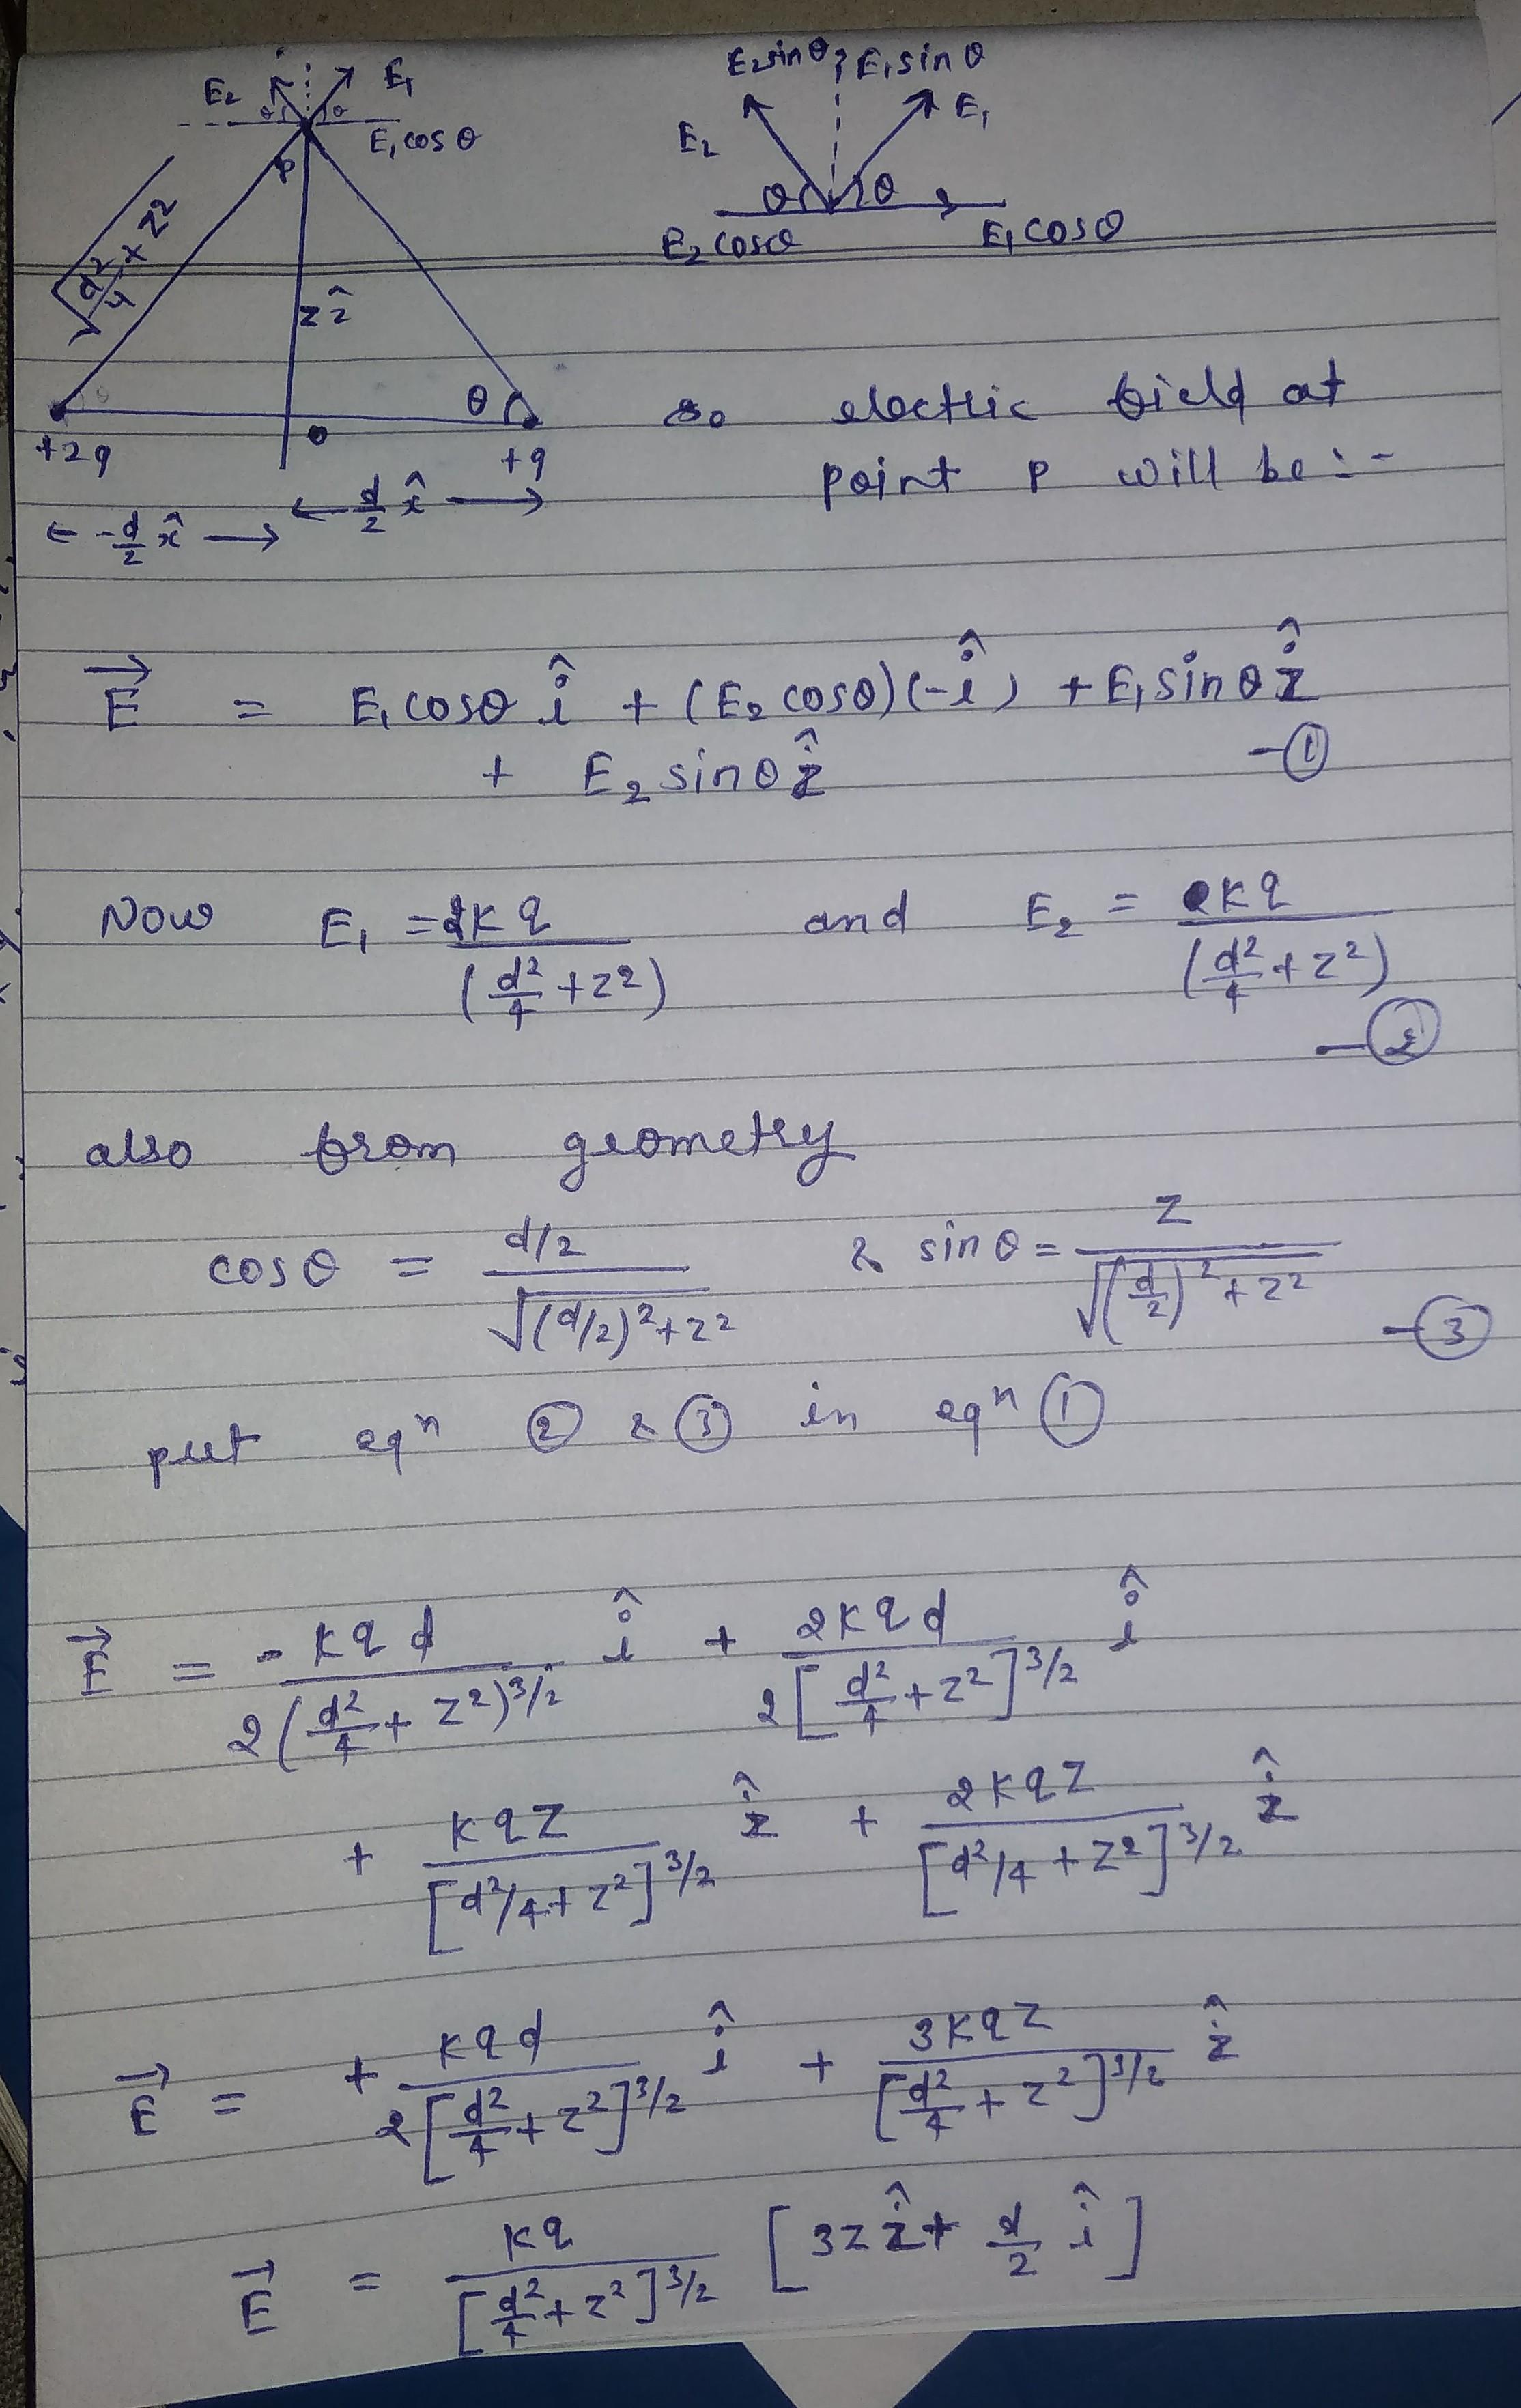 E₂ E₁
θ θ
E₁ cos θ
P
√(d²/4 + z²)
z ẑ
θ
+2q o +q
← -d/2 x̂ → ← d/2 x̂ →
E₂ sin θ E₁ sin θ
E₂ E₁
θ θ
E₂ cos θ E₁ cos θ
so electric field at
point P will be :-
E⃗ = E₁ cos θ î + (E₂ cos θ)(-î) + E₁ sin θ ẑ
+ E₂ sin θ ẑ -①
Now E₁ = 2Kq/(d²/4 + z²) and E₂ = Kq/(d²/4 + z²)
-②
also from geometry
cos θ = (d/2)/√((d/2)² + z²) & sin θ = z/√((d/2)² + z²) -③
put eqⁿ ② & ③ in eqⁿ ①
E⃗ = -Kqd/2(d²/4 + z²)^3/2 î + 2Kqd/2[d²/4 + z²]^3/2 î
+ Kqz/[d²/4 + z²]^3/2 ẑ + 2Kqz/[d²/4 + z²]^3/2 ẑ
E⃗ = + Kqd/2[d²/4 + z²]^3/2 î + 3Kqz/[d²/4 + z²]^3/2 ẑ
E⃗ = Kq/[d²/4 + z²]^3/2 [3z ẑ + d/2 î]